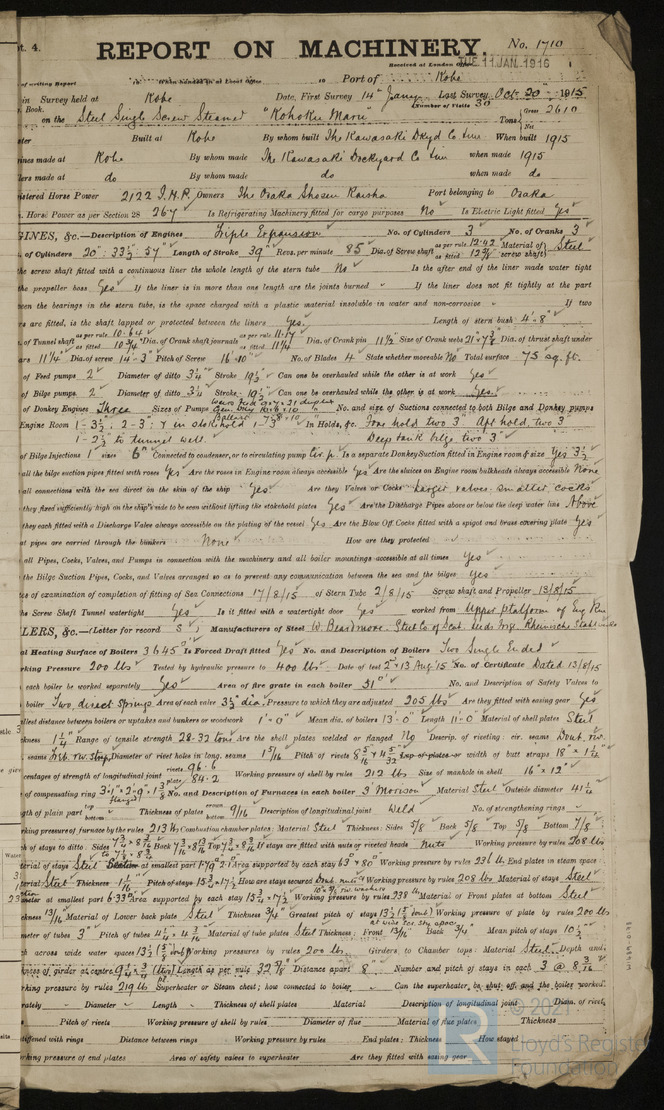 t. 4.
REPORT ON MACHINERY. No. 1710
Received at London Office TUE. 11 JAN. 1916
of writing Report When handed in at Local Office Port of Kobe
in Survey held at Kobe Date, First Survey 14th Jany Oct. 20th 1915
Book. Number of Visits 30
on the Steel Single Screw Steamer "Kohoku Maru" Tons Gross 2610
Net
Built at Kobe By whom built The Kawasaki Dkyd Co Lim When built 1915
ines made at Kobe By whom made The Kawasaki Dockyard Co Lim when made 1915
lers made at do By whom made do when made do
istered Horse Power 2122 I.H.P. Owners The Osaka Shosen Kaisha Port belonging to Osaka
. Horse Power as per Section 28 267 Is Refrigerating Machinery fitted for cargo purposes No Is Electric Light fitted Yes
GINES, &c.—Description of Engines Triple Expansion No. of Cylinders 3 No. of Cranks 3
. of Cylinders 20" : 33½" : 54" Length of Stroke 39" Revs. per minute 85 Dia. of Screw shaft as per rule 12.42 as fitted 12⅞ Material of screw shaft Steel
the screw shaft fitted with a continuous liner the whole length of the stern tube No Is the after end of the liner made water tight
the propeller boss Yes If the liner is in more than one length are the joints burned If the liner does not fit tightly at the part
een the bearings in the stern tube, is the space charged with a plastic material insoluble in water and non-corrosive If two
rs are fitted, is the shaft lapped or protected between the liners Yes. Length of stern bush 4'-8"
. of Tunnel shaft as per rule 10.64 as fitted 10¾ Dia. of Crank shaft journals as per rule 11.17 as fitted 11¼ Dia. of Crank pin 11½ Size of Crank webs 21" x 7⅜ Dia. of thrust shaft under
ars 11¼ Dia. of screw 14'-3" Pitch of Screw 16'-10" No. of Blades 4 State whether moveable No Total surface 75 sq. ft.
of Feed pumps 2 Diameter of ditto 3¼ Stroke 19½ Can one be overhauled while the other is at work Yes
of Bilge pumps 2 Diameter of ditto 3¼ Stroke 19½ Can one be overhauled while the other is at work Yes.
of Donkey Engines Three Sizes of Pumps No. and size of Suctions connected to both Bilge and Donkey pumps
Engine Room 1-3½ : 2-3" : & in stokehold 1-3" In Holds, &c. Fore hold two 3" Aft hold, two 3"
1-2½" to tunnel well. Deep tank bilge two 3"
of Bilge Injections 1 sizes 6" Connected to condenser, or to circulating pump Cir. p. Is a separate Donkey Suction fitted in Engine room & size Yes 3½
all the bilge suction pipes fitted with roses Yes Are the roses in Engine room always accessible Yes Are the sluices on Engine room bulkheads always accessible None
all connections with the sea direct on the skin of the ship Yes Are they Valves or Cocks Larger valves smaller, cocks
they fixed sufficiently high on the ship's side to be seen without lifting the stokehold plates Yes Are the Discharge Pipes above or below the deep water line Above
they each fitted with a Discharge Valve always accessible on the plating of the vessel Yes Are the Blow Off Cocks fitted with a spigot and brass covering plate Yes
at pipes are carried through the bunkers None How are they protected
all Pipes, Cocks, Valves, and Pumps in connection with the machinery and all boiler mountings accessible at all times Yes
the Bilge Suction Pipes, Cocks, and Valves arranged so as to prevent any communication between the sea and the bilges Yes
te of examination of completion of fitting of Sea Connections 17/8/15 of Stern Tube 2/8/15 Screw shaft and Propeller 13/8/15
he Screw Shaft Tunnel watertight Yes Is it fitted with a watertight door Yes worked from Upper platform of Eng Rm
LERS, &c.—(Letter for record S) Manufacturers of Steel W. Beardmore. Steel Co of Scot.
al Heating Surface of Boilers 3645 Is Forced Draft fitted Yes No. and Description of Boilers Two Single Ended
rking Pressure 200 lbs Tested by hydraulic pressure to 400 lbs Date of test 2 & 13 Aug '15 No. of Certificate Dated 13/8/15
each boiler be worked separately Yes Area of fire grate in each boiler 51 No. and Description of Safety Valves to
boiler Two, direct Springs Area of each valve 3½ dia. Pressure to which they are adjusted 205 lbs Are they fitted with easing gear Yes
llest distance between boilers or uptakes and bunkers or woodwork 1'-0" Mean dia. of boilers 13'-0" Length 11'-0 Material of shell plates Steel
kness 1¼ Range of tensile strength 28-32 tons Are the shell plates welded or flanged No Descrip. of riveting: cir. seams Doub. riv.
seams Diameter of rivet holes in long. seams 1 5/16 Pitch of rivets Lap of plates or width of butt straps 18" x 1¼
centages of strength of longitudinal joint rivets 96.6 plate 84.2 Working pressure of shell by rules 212 lbs Size of manhole in shell 16" x 12"
of compensating ring No. and Description of Furnaces in each boiler 3 Morison Material Steel Outside diameter 41¼
gth of plain part top bottom Thickness of plates crown bottom 9/16 Description of longitudinal joint Weld No. of strengthening rings
rking pressure of furnace by the rules 213 lbs Combustion chamber plates: Material Steel Thickness: Sides 5/8 Back 5/8 Top 5/8 Bottom 7/8
ch of stays to ditto: Sides Back Top If stays are fitted with nuts or riveted heads Nuts Working pressure by rules 208 lb
terial of stays Steel at smallest part Area supported by each stay 63 & 80 Working pressure by rules 231 lb End plates in steam space:
terial Steel Thickness Pitch of stays 15¾ x 17½ How are stays secured Working pressure by rules 208 lbs Material of stays Steel
meter at smallest part 6.33 Area supported by each stay 15¾ x 17½ Working pressure by rules 238 lb Material of Front plates at bottom Steel
ckness 13/16 Material of Lower back plate Steel Thickness ¾ Greatest pitch of stays Working pressure of plate by rules 200 lbs
meter of tubes 3" Pitch of tubes Material of tube plates Steel Thickness: Front 13/16 Back ¾ Mean pitch of stays
ch across wide water spaces Working pressures by rules 200 lbs Girders to Chamber tops: Material Steel. Depth and
ness of girder at centre Length as per rule 32⅞ Distance apart 8 Number and pitch of stays in each 3 @
rking pressure by rules 219 lb Superheater or Steam chest; how connected to boiler Can the superheater be shut off and the boiler worked
rately Diameter Length Thickness of shell plates Material Description of longitudinal joint Diam. of rivet
Pitch of rivets Working pressure of shell by rules Diameter of flue Material of flue plates Thickness
stiffened with rings Distance between rings Working pressure by rules End plates: Thickness How stayed
rking pressure of end plates Area of safety valves to superheater Are they fitted with easing gear
© 2021
Lloyd's Register
Foundation